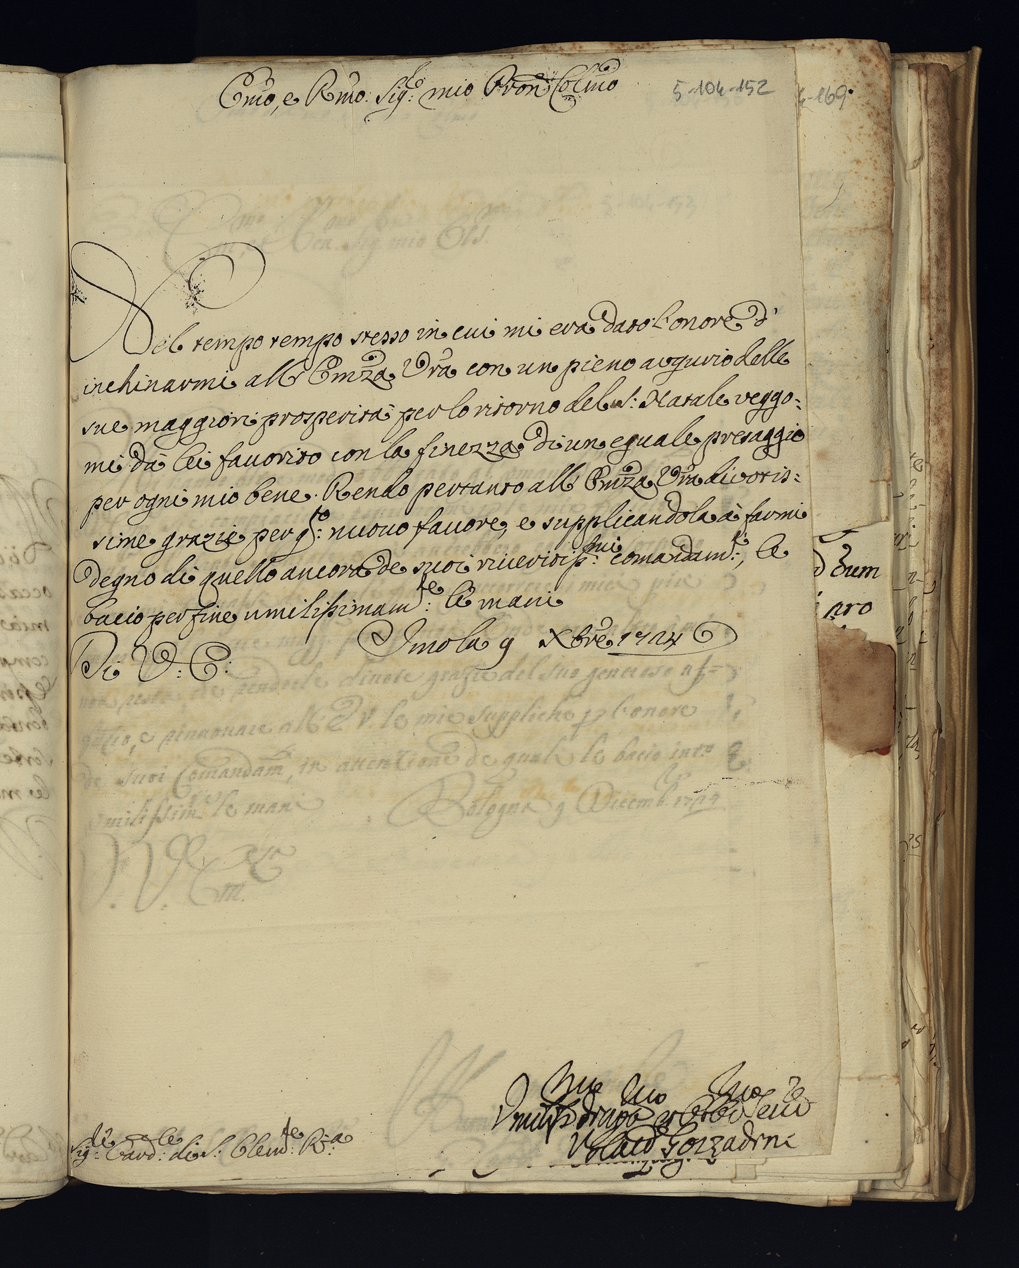 Emo, e Rmo: Sig.re mio Pron Colmo
5-104-152
4-169.
Nel tempo tempo stesso in cui mi era dato l'onore d'
inchinarmi all' Emza Vra con un pieno augurio delle
sue maggiori prosperità per lo ritorno del S: Natale veggo=
mi da lei favorito con la finezza di un eguale presaggio
per ogni mio bene. Rendo pertanto all' Emza Vra divotis=
sime grazie per q.to: nuovo favore, e supplicandola à farmi
degno di quello ancora de suoi riveritiss.mi comandam.ti, le
bacio per fine umilissimam.te: le mani
Di V: E:
Imola 9 Xbre 1724
Umiliss
Gozzadini
Sig.re Card.le: di S. Clem.te: R.a